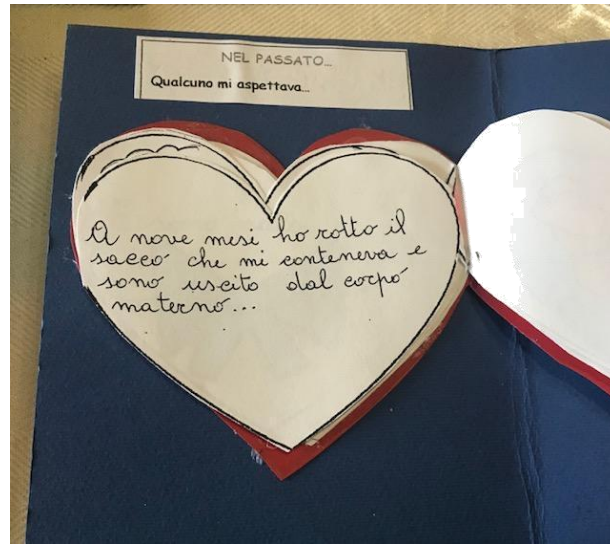 NEL PASSATO...
Qualcuno mi aspettava...
A nove mesi ho rotto il
sacco che mi conteneva e
sono uscito dal corpo
materno...